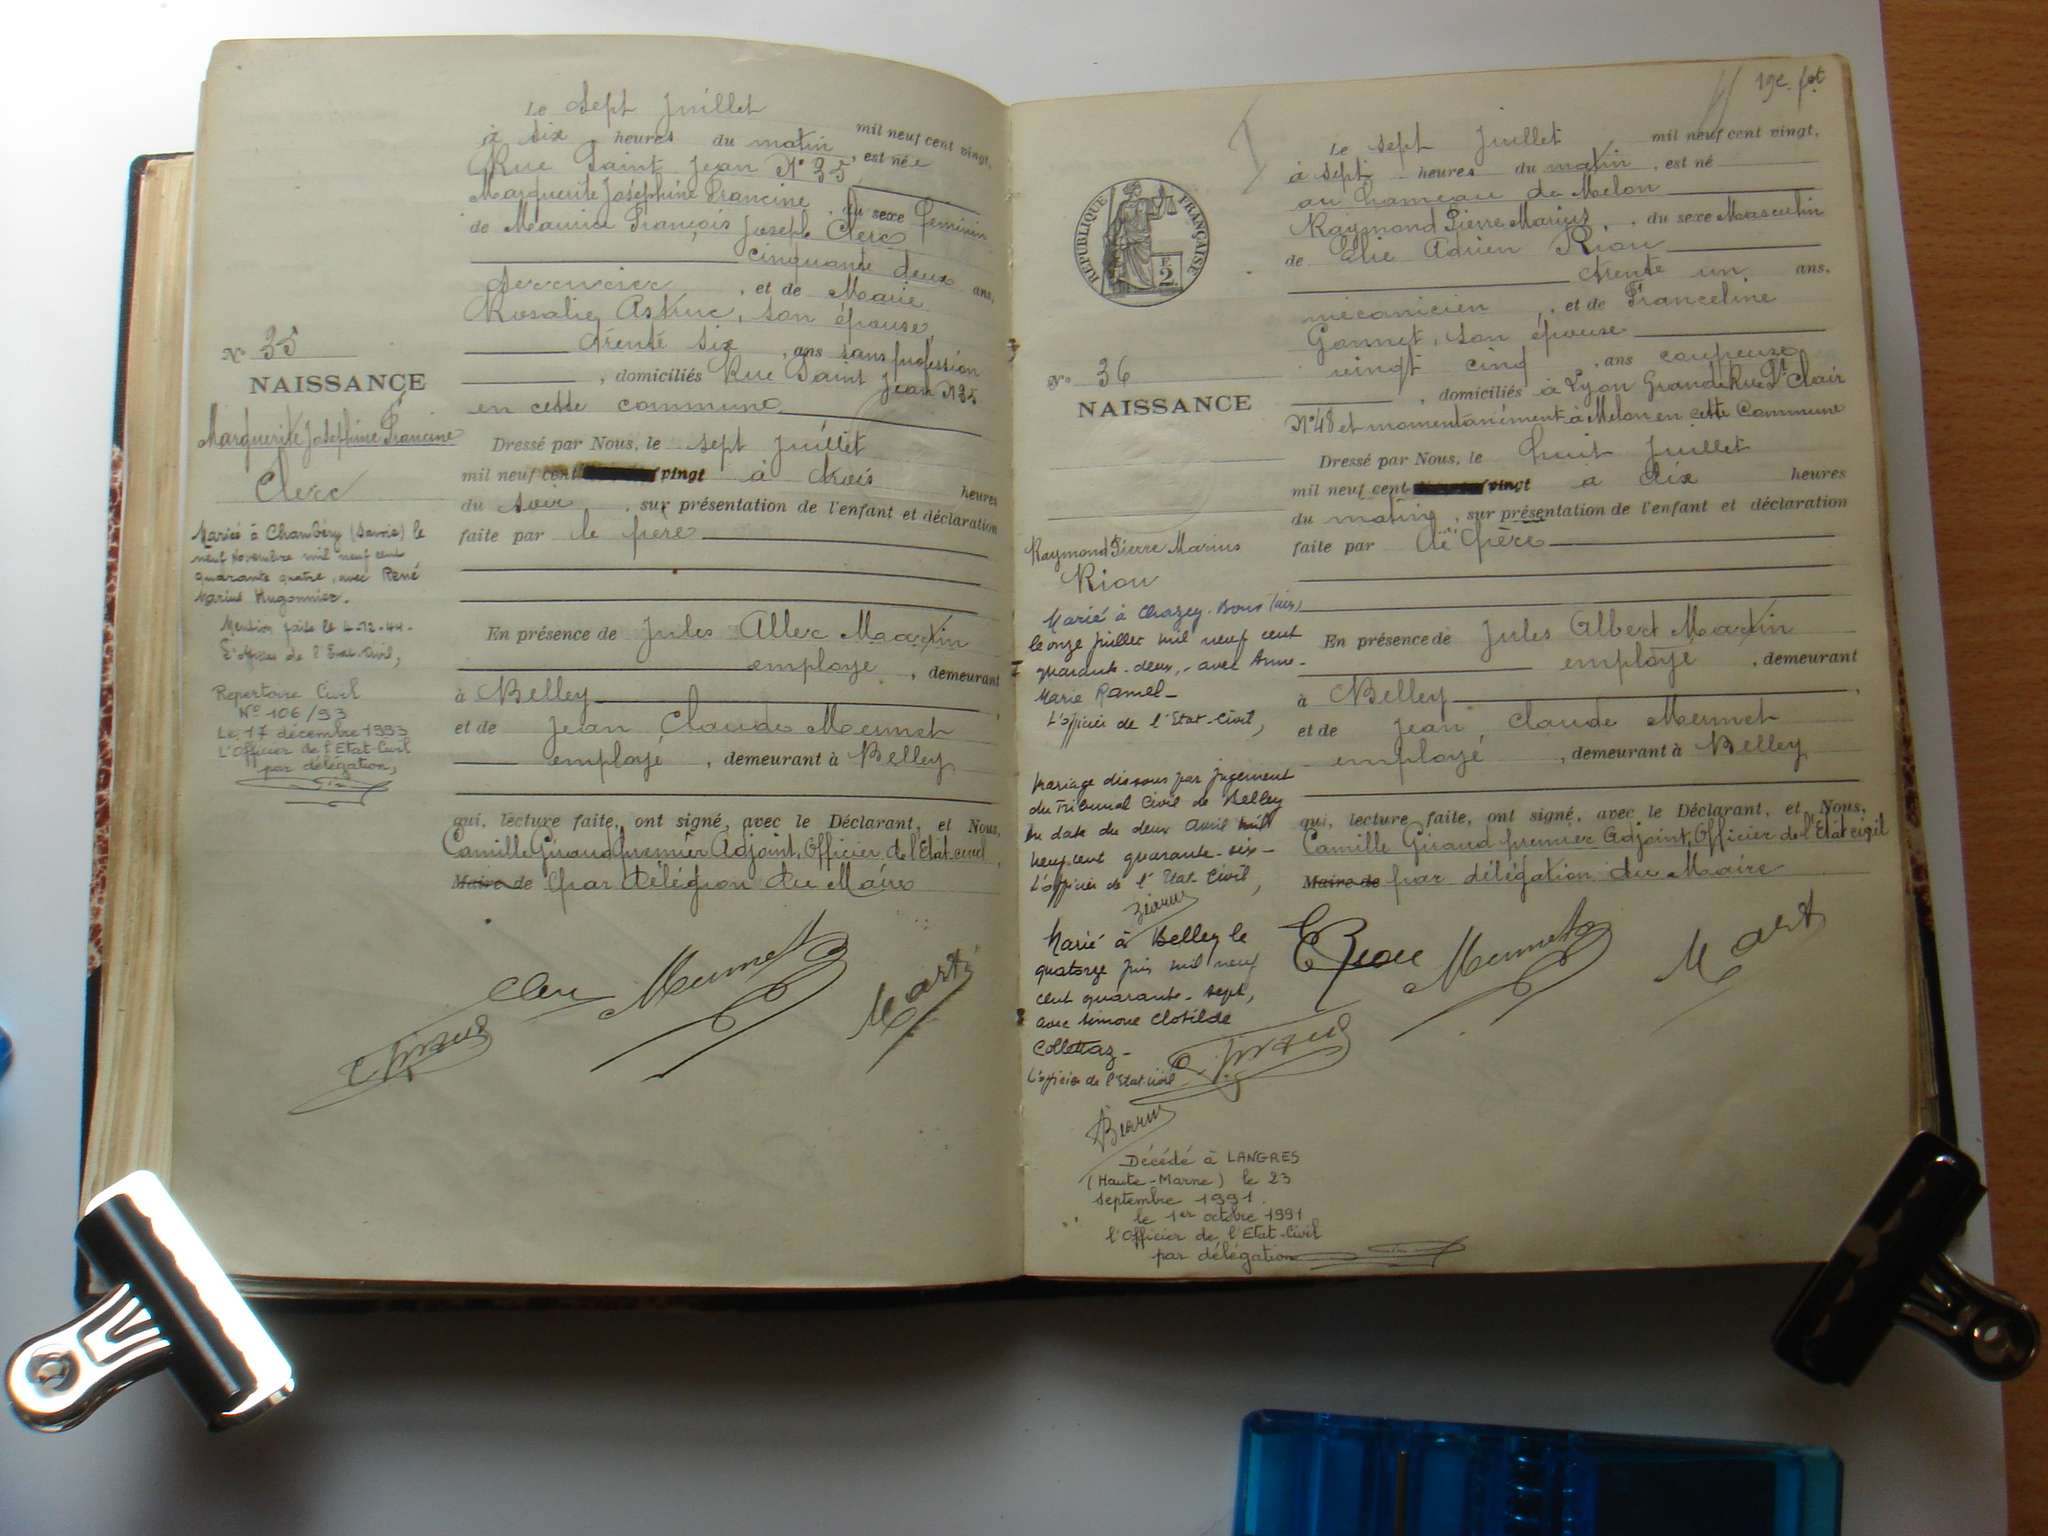 Le sept Juillet mil neuf cent vingt,
à six heures du matin, est née
Rue Saint Jean N° 35
Marguerite Joséphine Francine, du sexe féminin
de Maurice François Joseph Clerc
cinquante deux ans,
, et de Marie
Rosalie Astruc, son épouse
trente six, ans sans profession
, domiciliés Rue Saint Jean N 35
en cette commune
N° 35
NAISSANCE
Marguerite Joséphine Francine
Clerc
Mariée à Chambéry (Savoie) le
neuf Novembre mil neuf cent
quarante quatre, avec René
Marius Hugonnier.
Mention faite le 4-12-44-
L'officier de l'Etat-Civil,
Repertoire Civil
N° 106/93
Le 17 décembre 1993
L'Officier de l'Etat-Civil
par délégation,
Dressé par Nous, le sept Juillet
mil neuf cent vingt à trois heures
du soir, sur présentation de l'enfant et déclaration
faite par le père
En présence de Jules Martin
employe, demeurant
à Belley,
et de Jean Claude Meunet
employé, demeurant à Belley
qui, lecture faite, ont signé, avec le Déclarant, et Nous,
Camille Giraud premier Adjoint, Officier de l'Etat-civil,
Maire de par délégion du Maire
Clerc Meunet Mart
19e. fet
Le sept Juillet mil neuf cent vingt,
à sept heures du matin, est né
au hameau de Melon
Raymond Pierre Marius, du sexe Masculin
de Elie Adrien Riou
trente un ans,
mécanicien, et de Franceline
Gonnet, son épouse
vingt cinq, ans coupeuse
, domiciliés à Lyon Grande Rue St Clair
N° 48 et momentanément à Melon en cette Commune
RÉPUBLIQUE FRANÇAISE
F. 2
N° 36
NAISSANCE
Raymond Pierre Marius
Riou
Marié à Chazey-Bons (Ain)
le onze juillet mil neuf cent
quarante-deux, avec Anne-
Marie Ramel-
L'officier de l'Etat-Civil,
Mariage dissous par jugement
du Tribunal Civil de Belley
en date du deux Avril mil
neuf cent quarante-six-
L'officier de l'Etat-Civil,
Marié à Belley le
quatorze juin mil neuf
cent quarante-sept,
avec Simone Clotilde
Collettaz-
L'officier de l'Etat-Civil
Décédé à LANGRES
(Haute-Marne) le 23
septembre 1991.
le 1er octobre 1991
l'Officier de l'Etat-Civil
par délégation
Dressé par Nous, le huit Juillet
mil neuf cent vingt à dix heures
du matin, sur présentation de l'enfant et déclaration
faite par le père
En présence de Jules Albert Martin
employé, demeurant
à Belley,
et de Jean Claude Meunet
employé, demeurant à Belley
qui, lecture faite, ont signé, avec le Déclarant, et Nous,
Camille Giraud premier Adjoint, Officier de l'Etat civil
Maire de par délégation du Maire
E Riou Meunet Mart